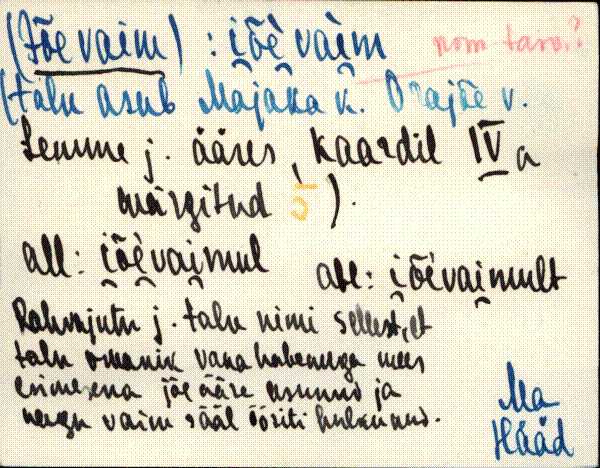 (Jõevaim) : i̯õèvai̯m nom taro.?
(talu asub Majaka k. Orajõe v.
Lemme j. ääres, kaardil IV a
märgitud 5 ).
all: i̯õèvai̯mul abl: i̯õèvai̯mult
Rahvajutu j. talu nimi sellest, et
talu omanik vana habemega mees
esimesena jõe ääre asunud ja
nagu vaim sääl öösiti hulkunud.
Ma
Hääd